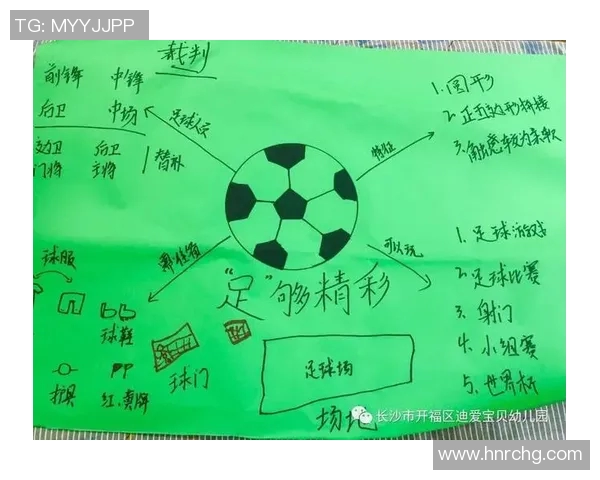 TG: MYYJJPP
裁判
前锋 中锋
后卫 中场
后卫
门将 主将
替补
足球人员
特征
1.圆形
2.正五边形拼接
3.触感较为柔软
可以玩
1.足球游戏
2.足球比赛
3.射门
4.小组赛
5.世界杯
球服
球鞋
护具
红.黄牌
球门
"足"够精彩
足球场
场地
长沙市开福区迪爱宝贝幼儿园
www.hnrchg.com